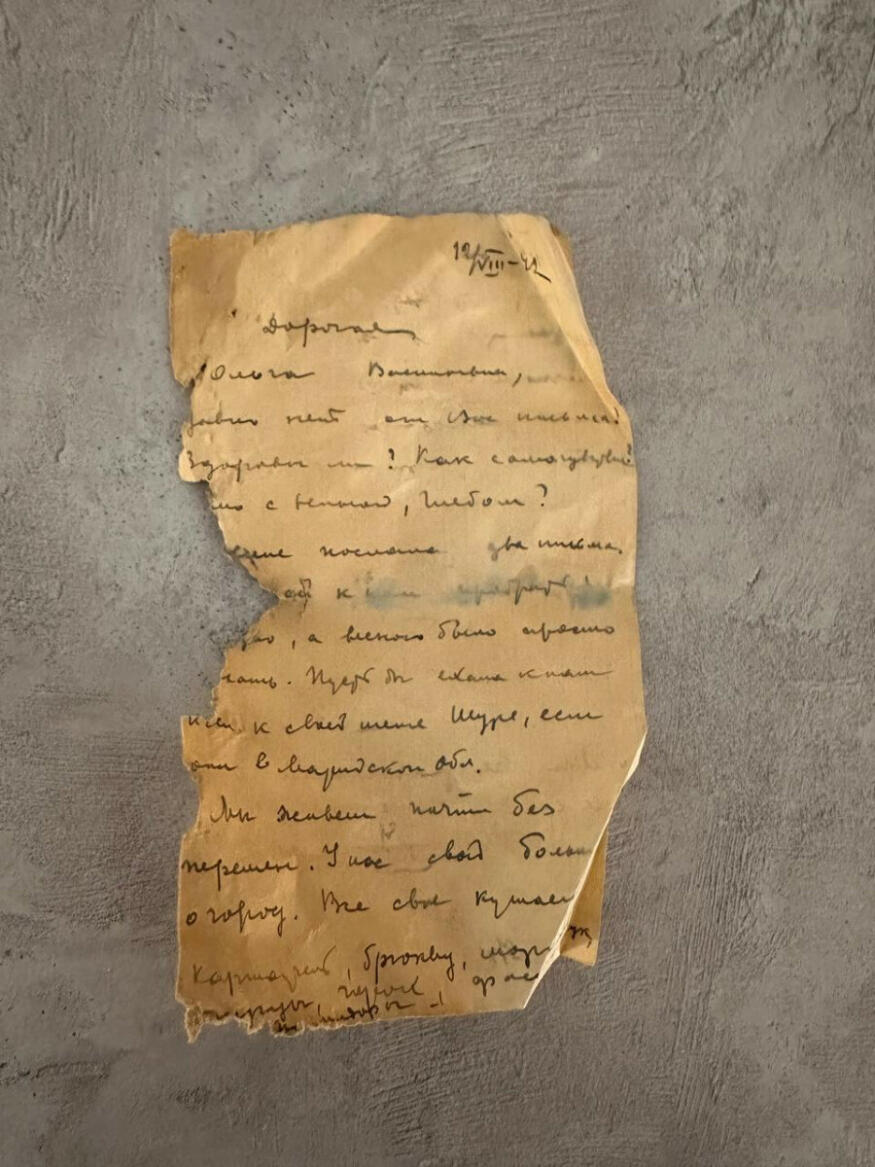 12/VIII-42
Дорогая
Ольга Васильевна,
давно нет от Вас письма.
Здоровы ли? Как самочувствие?
с Глебом?
послала два письма.
к
, а весною было просто
ехать. Пусть бы ехала к нам
или к своей тете Шуре, если
они в Марийской обл.
Мы живем почти без
перемен. У нас свой больш
огород. Все свое кушаем
картофель, брюкву, мор ж
огурцы, горох, фас
помидоры